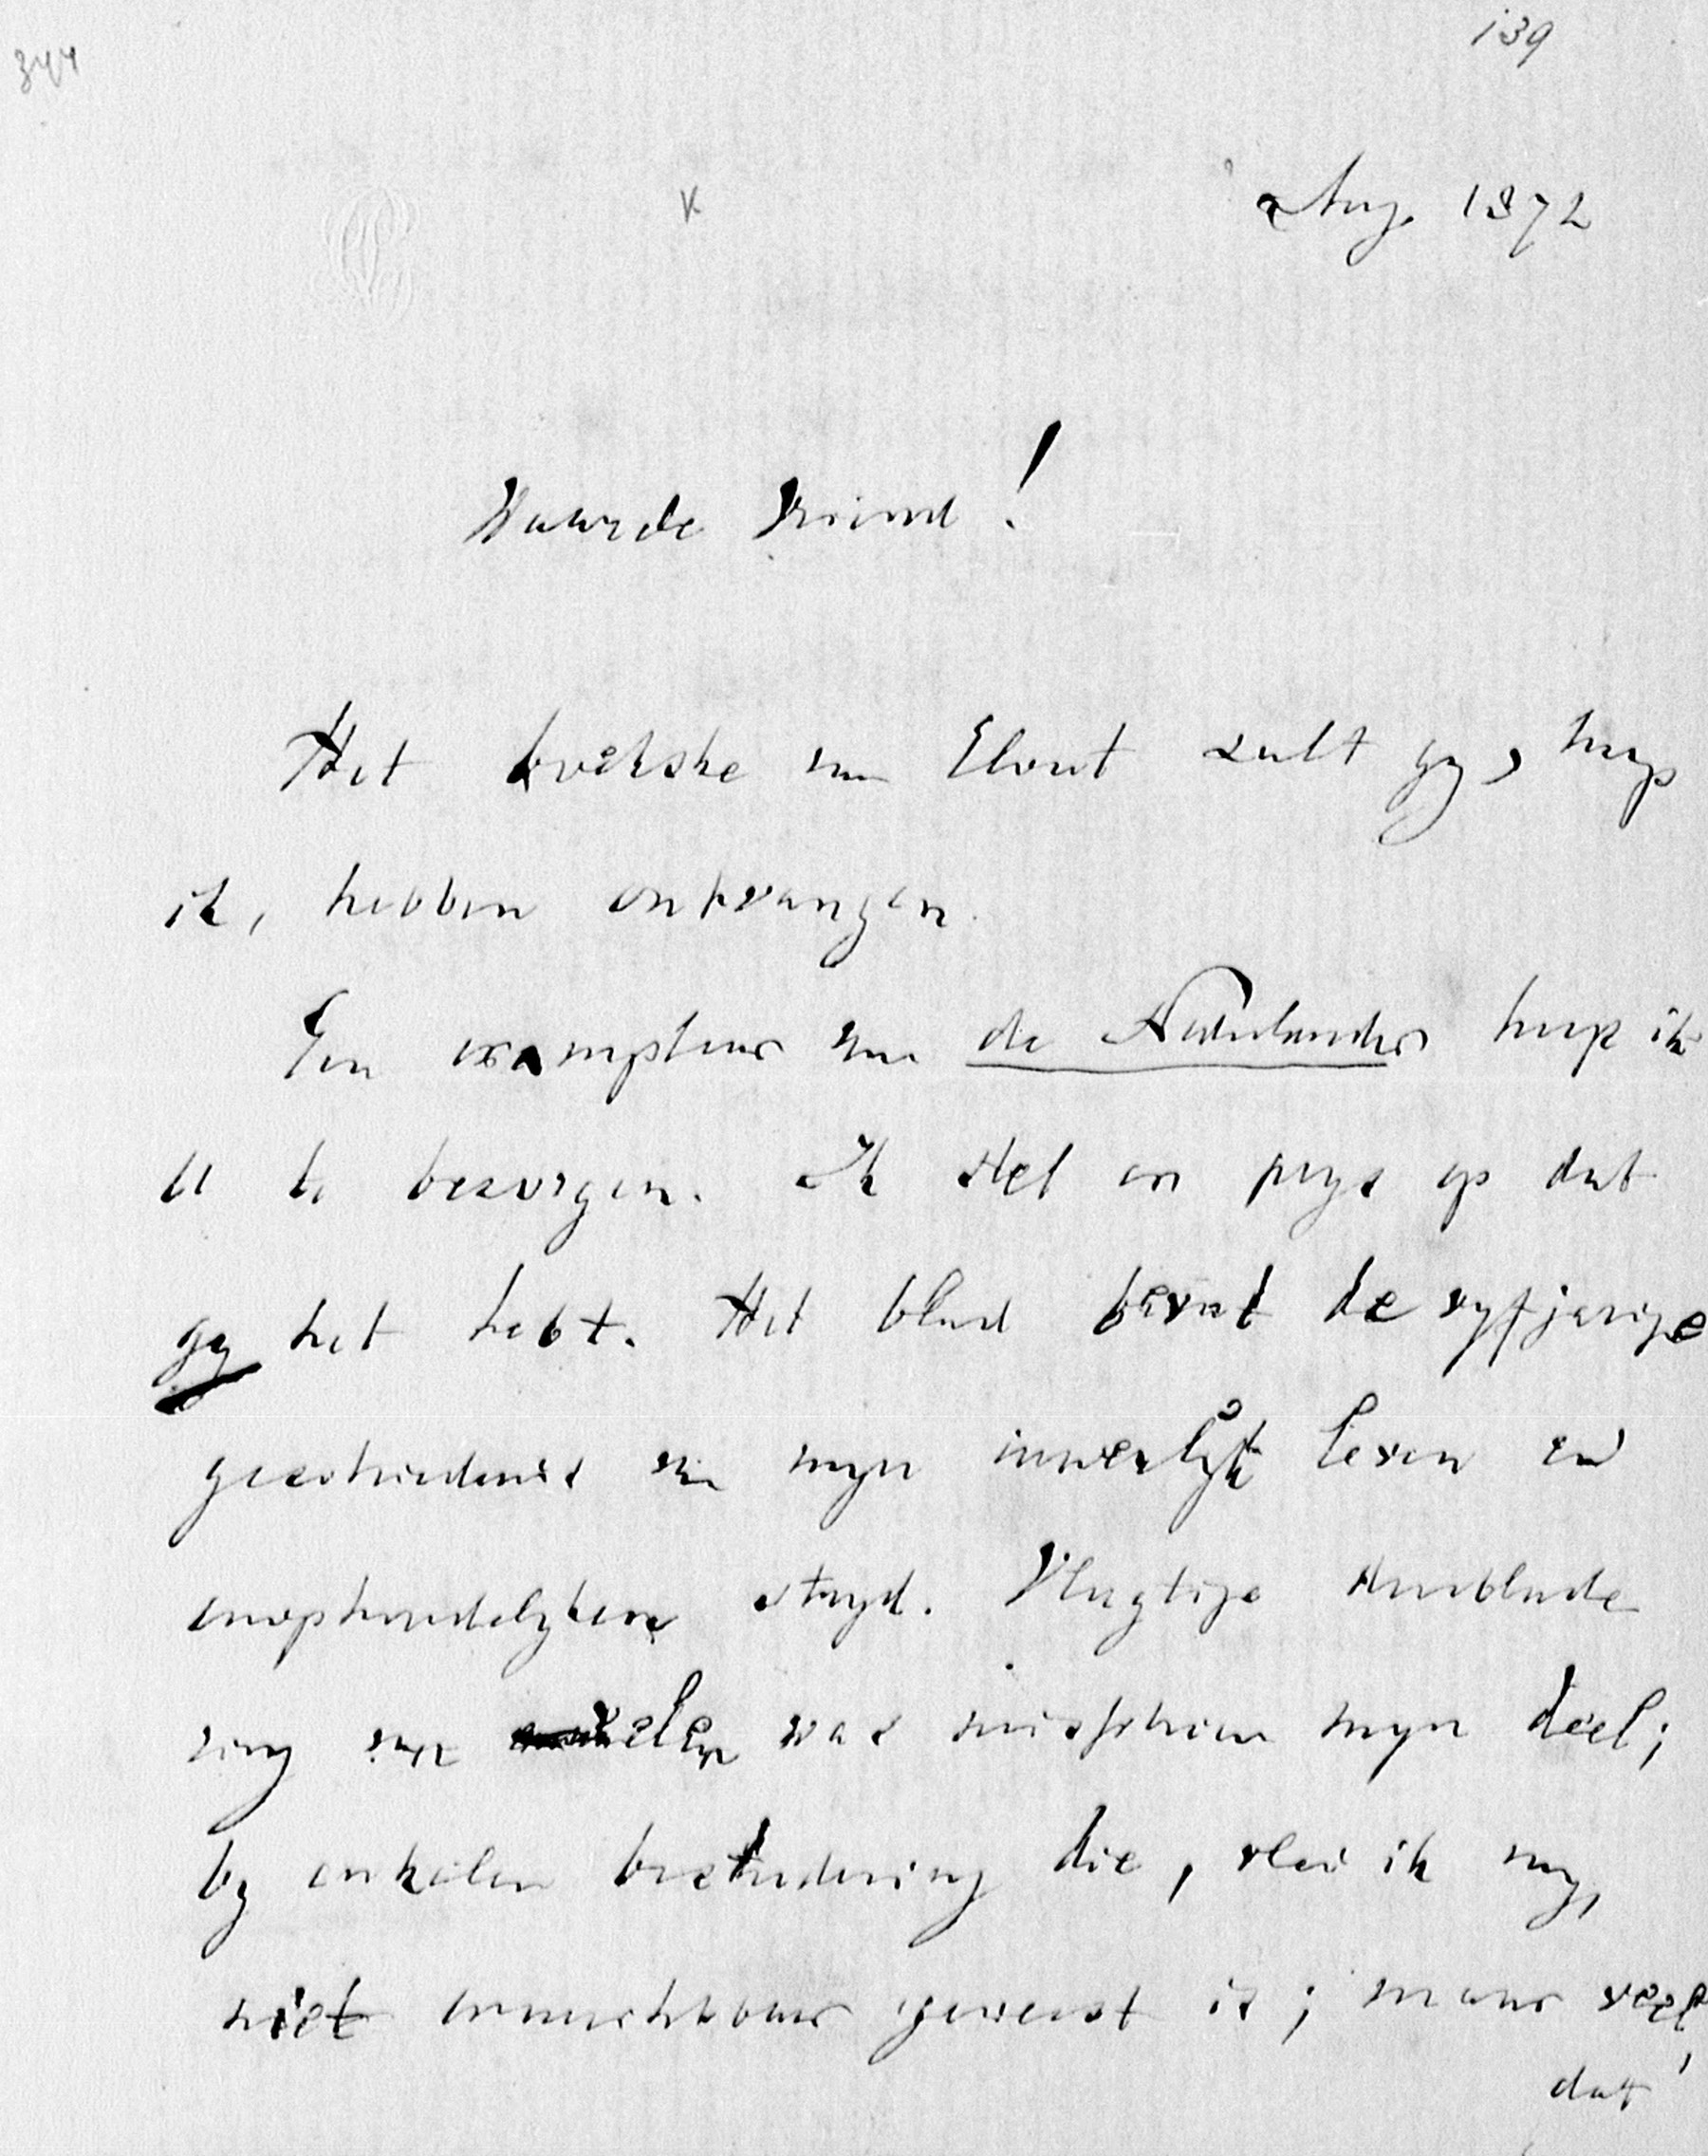 344
139
K
Aug. 1872
Waarde Vriend!
Het boekske van Elout zult gy, hoop
ik, hebben ontvangen.
Een exemplaar van de Nederlander hoop ik
U te bezorgen. Ik stel er prys op dat
gy het hebt. Het blad bevat de vyfjarige
geschiedenis van myn innerlyk leven en
onophoudelyken stryd. Vlugtige doorblade
ring van velen was misschien myn deel;
by enkelen bestudering die, vlei ik my,
niet onvruchtbaar geweest is; maar veel
dat